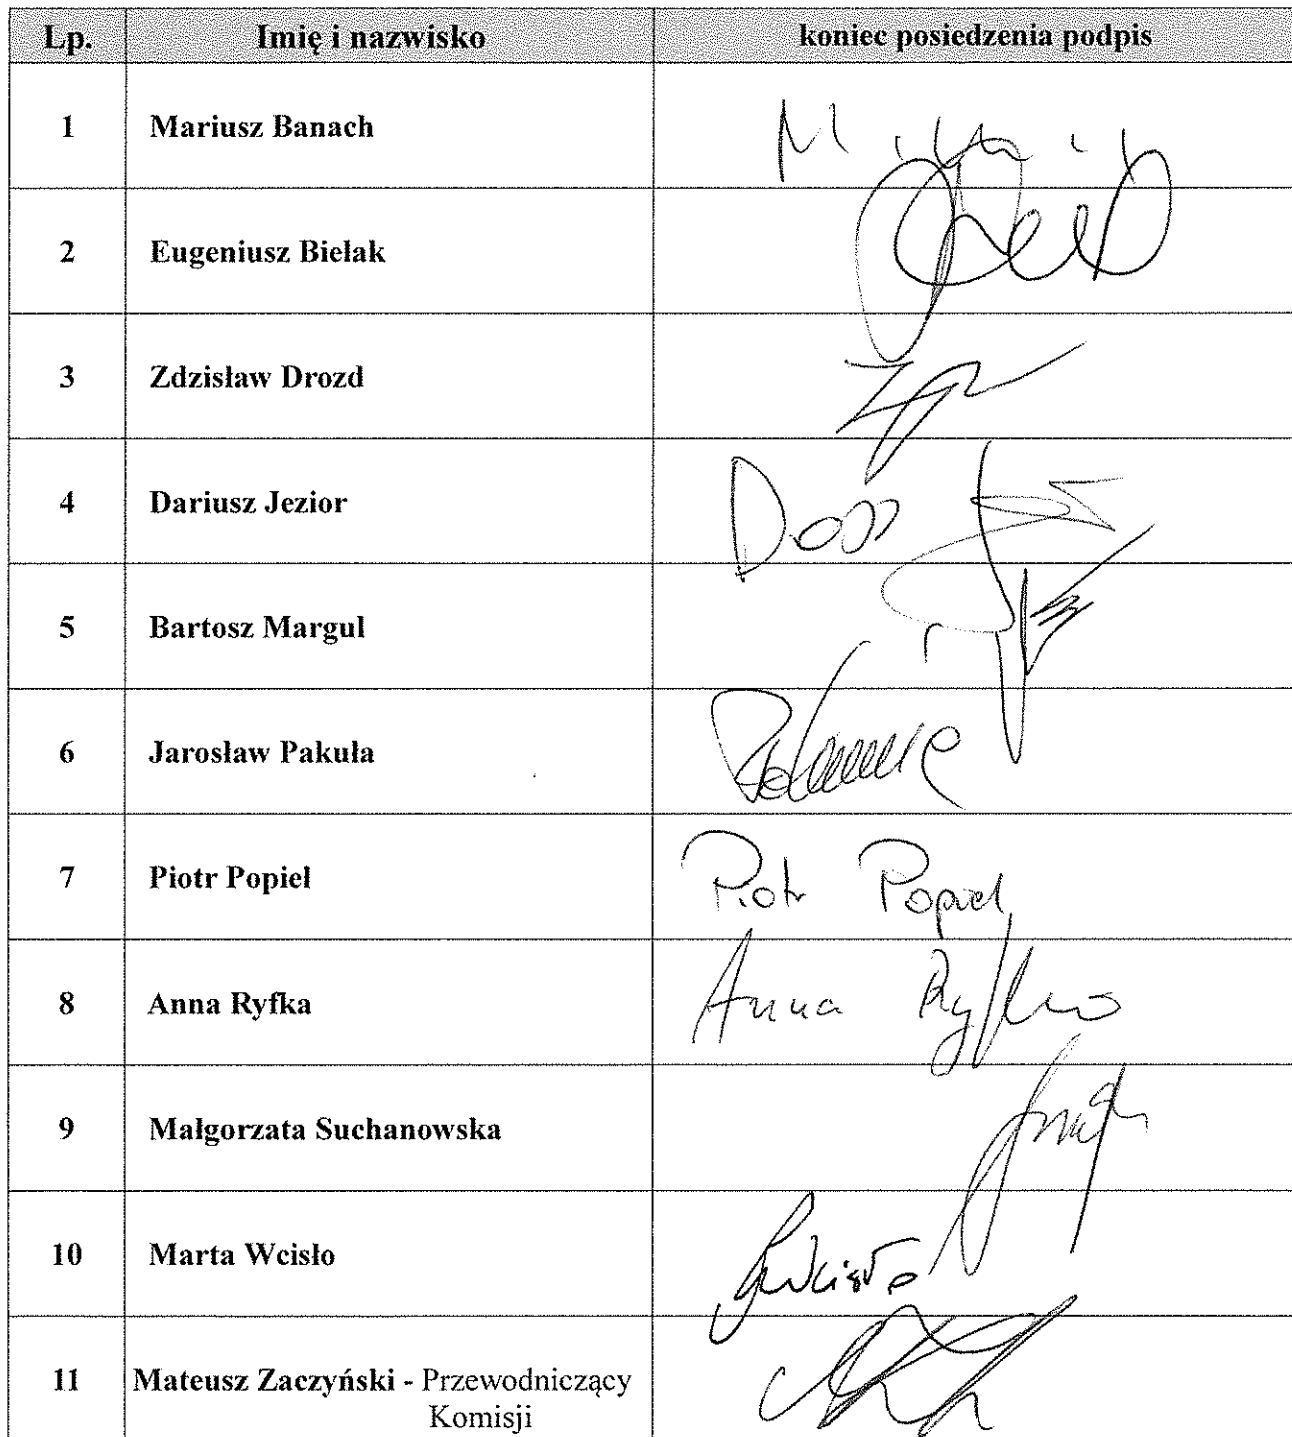 Lp. Imię i nazwisko koniec posiedzenia podpis
1 Mariusz Banach
2 Eugeniusz Bielak
3 Zdzisław Drozd
4 Dariusz Jezior
5 Bartosz Margul
6 Jarosław Pakuła
7 Piotr Popiel Piotr Popiel
8 Anna Ryfka Anna Ryfka
9 Małgorzata Suchanowska
10 Marta Wcisło Wcisło
11 Mateusz Zaczyński - Przewodniczący
Komisji